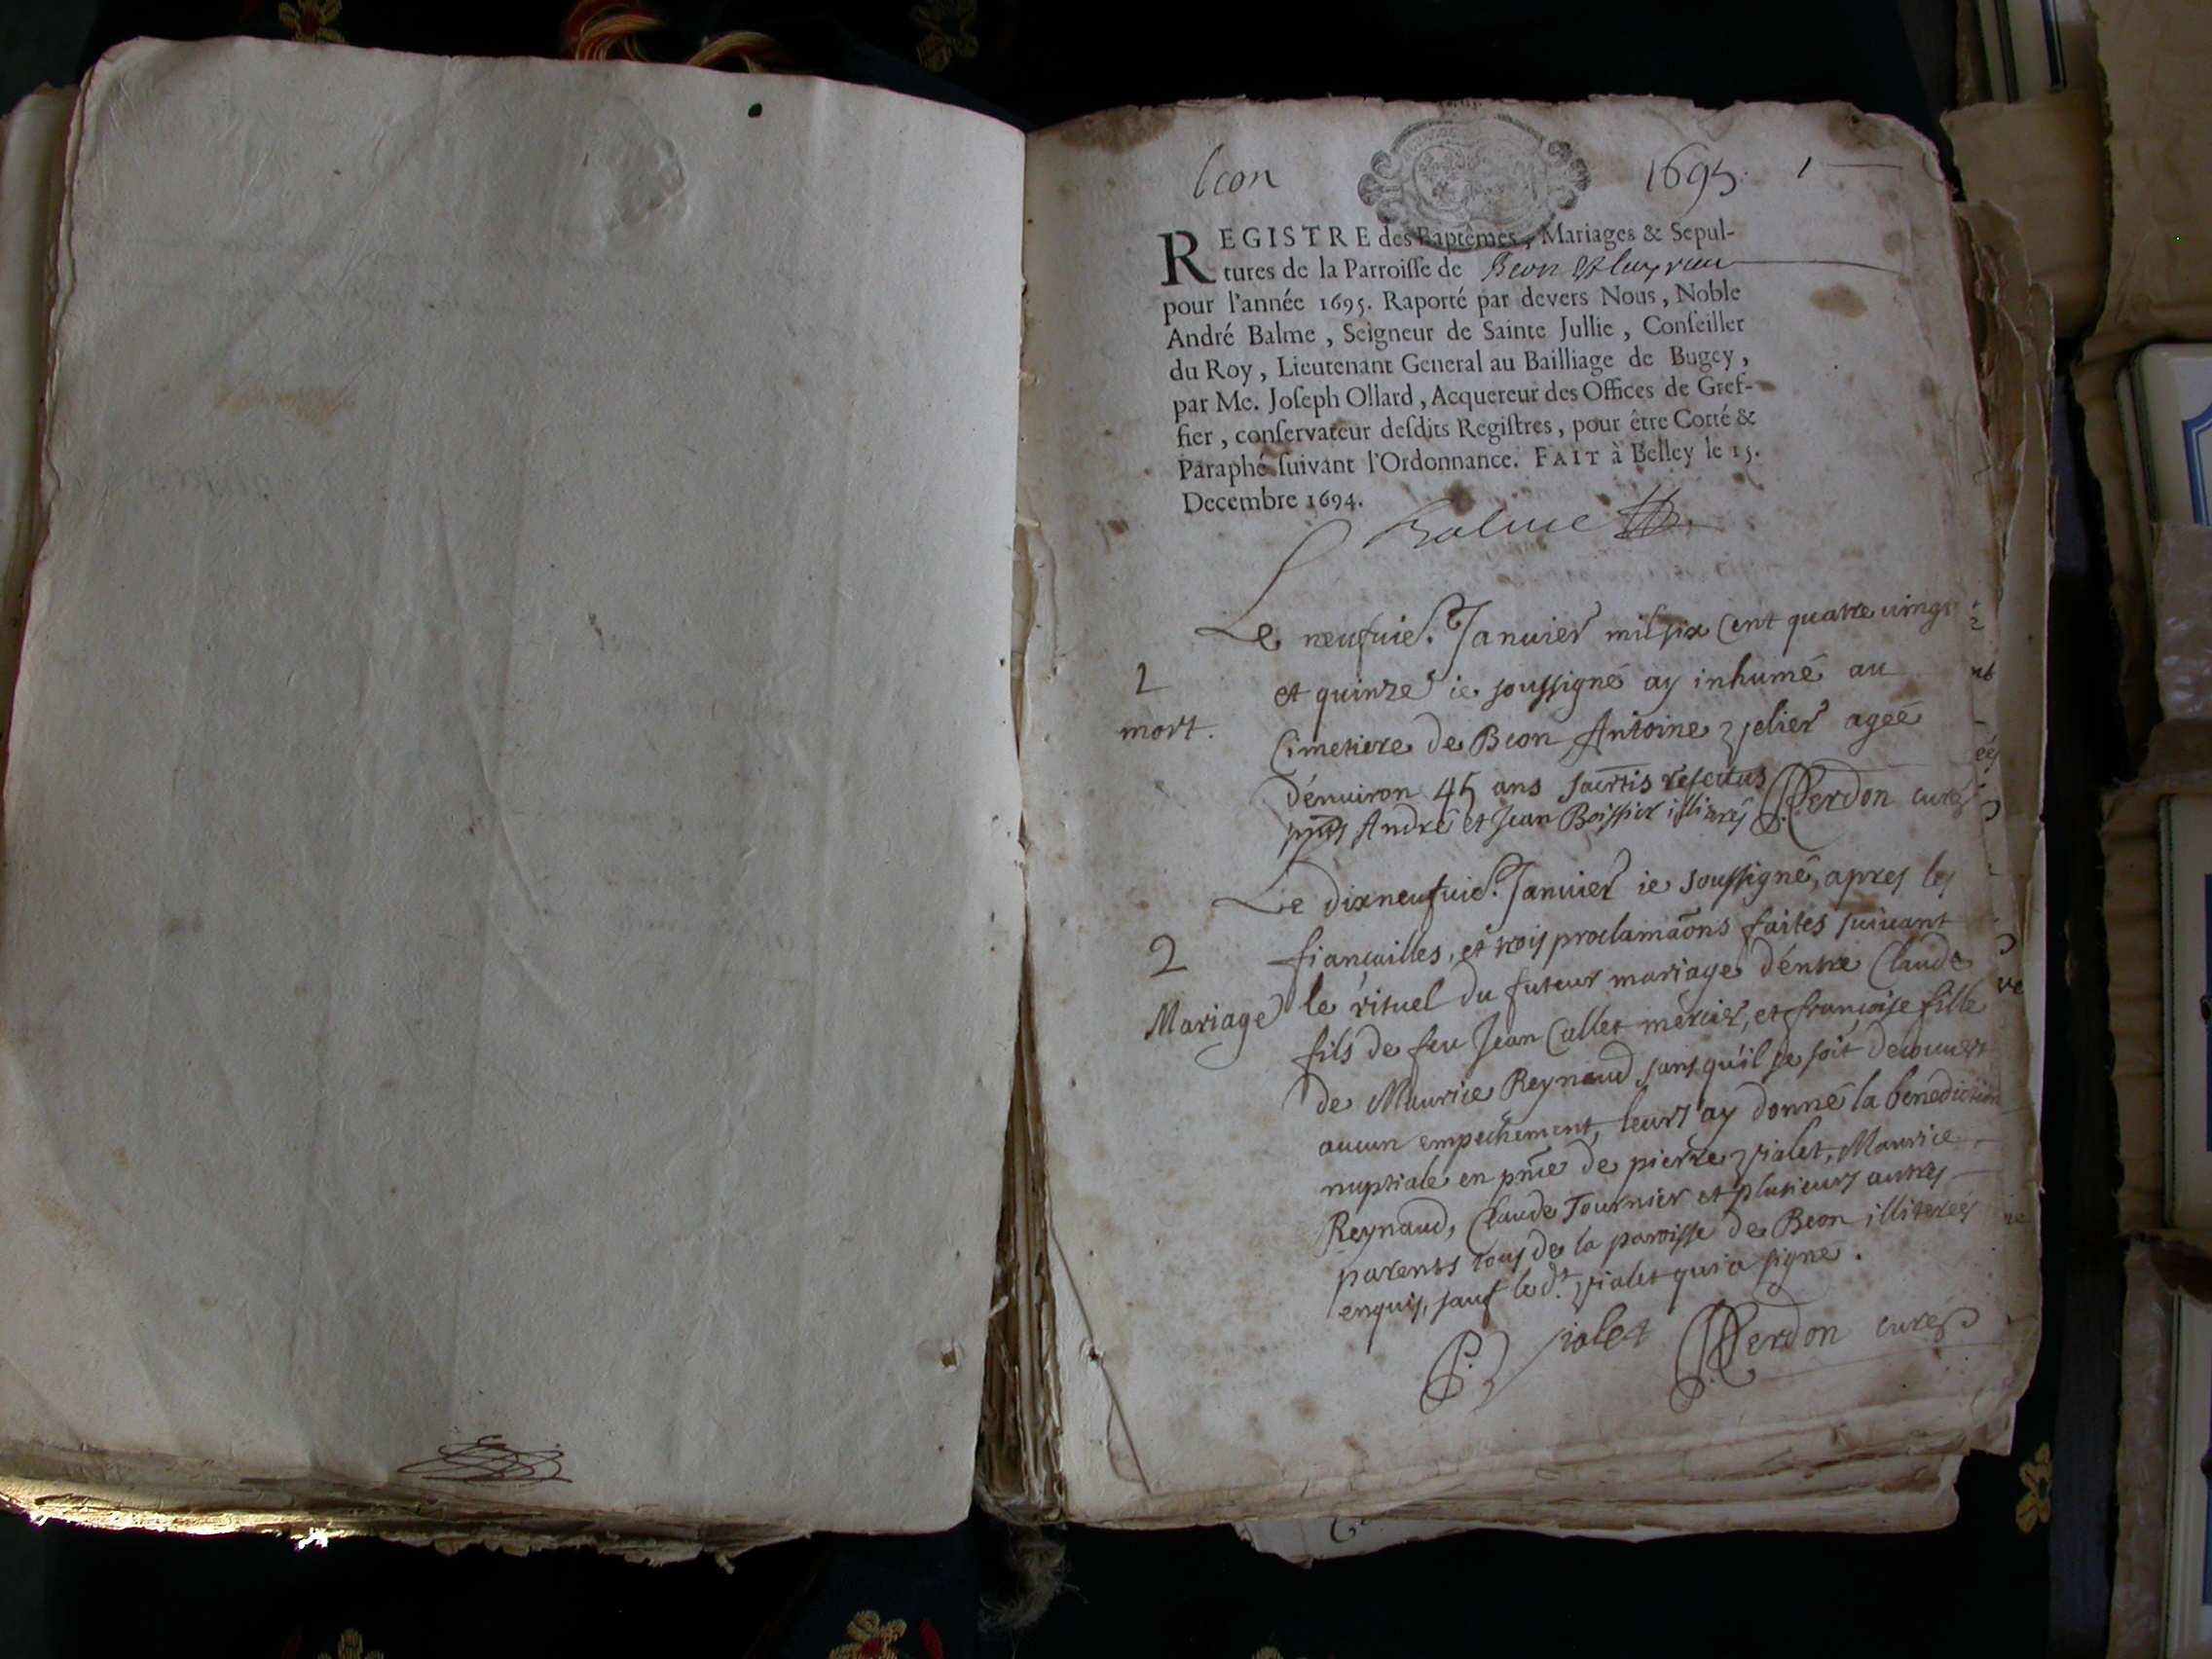 Beon 1695. 1
REGISTRE des Baptêmes, Mariages & Sepul-
tures de la Parroisse de Beon et luyrieu
pour l'année 1695. Raporté par devers Nous, Noble
André Balme, Seigneur de Sainte Jullie, Conseiller
du Roy, Lieutenant General au Bailliage de Bugey,
par Me. Joseph Ollard, Acquereur des Offices de Gref-
fier, conservateur desdits Registres, pour être Cotté &
Paraphé suivant l'Ordonnance. FAIT à Belley le 15.
Decembre 1694.
Balme
Le neufuie. Januier mil six Cent quatre uingt
et quinze ie soussigné ay inhumé au
1
mort.
Cimetiere de Beon Antoine ageé
d'enuiron 45 ans
pnts André et Jean Boissier illiterés Perdon curé
Le dixneufuie. Januier ie soussigné, apres les
2
Mariage
fiançailles, et trois proclamãons faites suiuant
le rituel du futeur mariage d'entre Claude
fils de feu Jean Callet mercier, et françoise fille
de Maurice Reynaud sans qu'il se soit decouuert
aucun empechement, leurs ay donné la benediction
nuptiale en pñce de pierre Vialet, Maurice
Reynaud, Claude Tournier et plusieurs autres
parents tous de la paroisse de Beon illiterés
enquis, sauf le dt. Vialet qui a signé.
P. Vialet Perdon curé